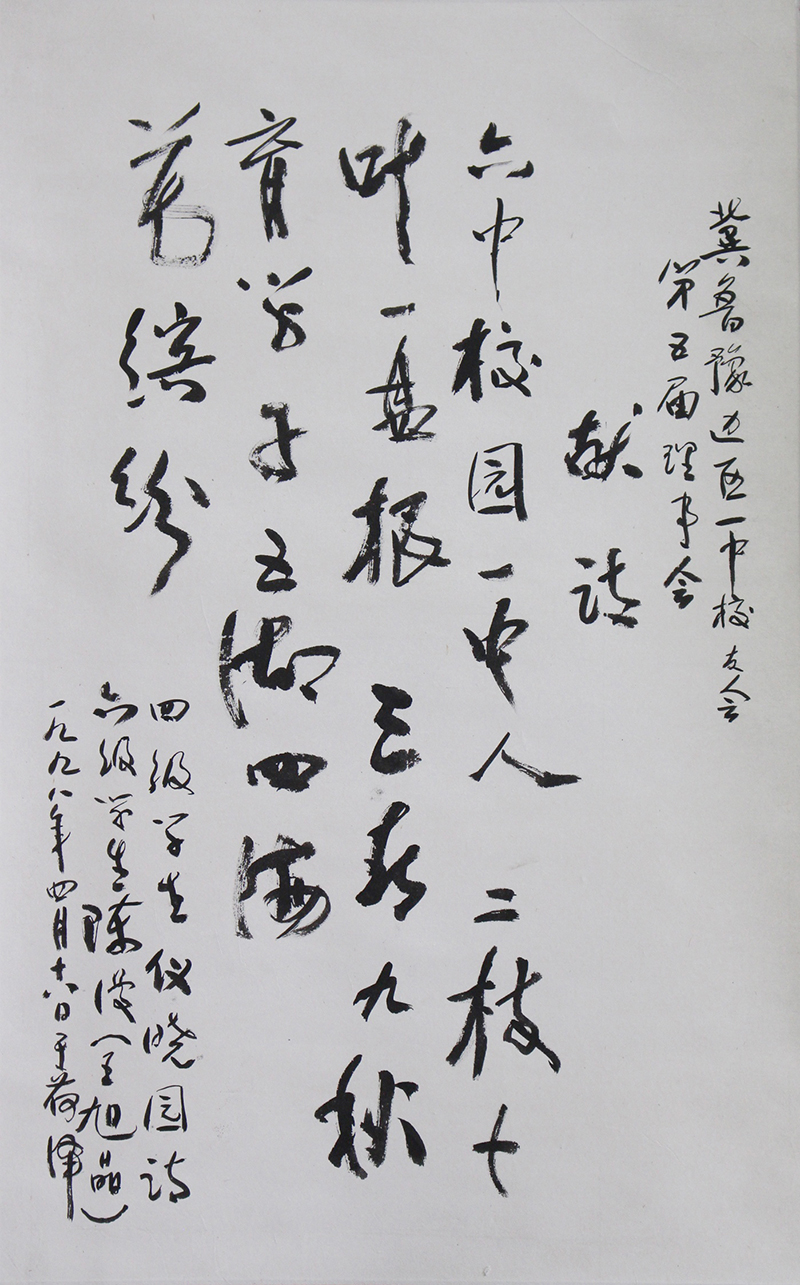 冀鲁豫边区一中校友会
第五届理事会
献诗
六中校园一中人 二枝七
叶一盘根 三春九秋
育学子 五湖四海
著缤纷
四级学生仪晓园诗
六级学生陈洪(王旭晶)
一九九八年四月十六日于菏泽